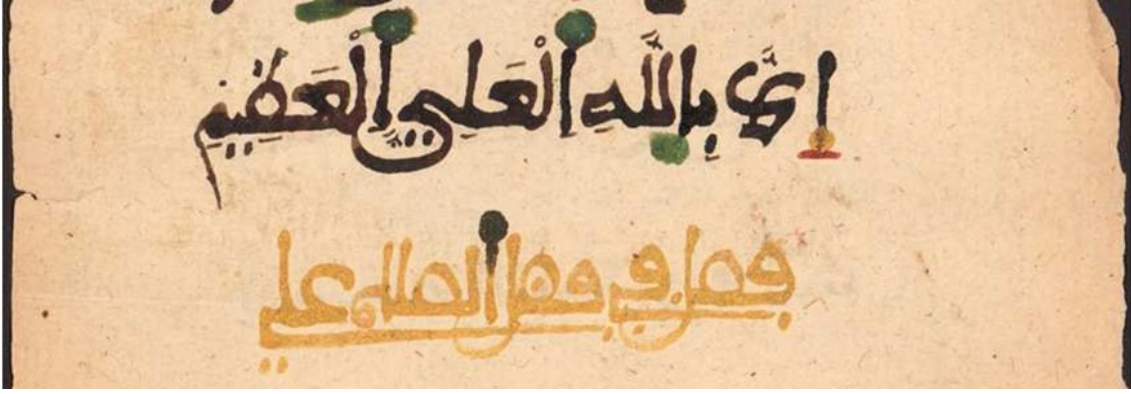 إِلَّا بِاللَّهِ الْعَلِيِّ الْعَظِيمِ
فصل في فضل الصلاة علي